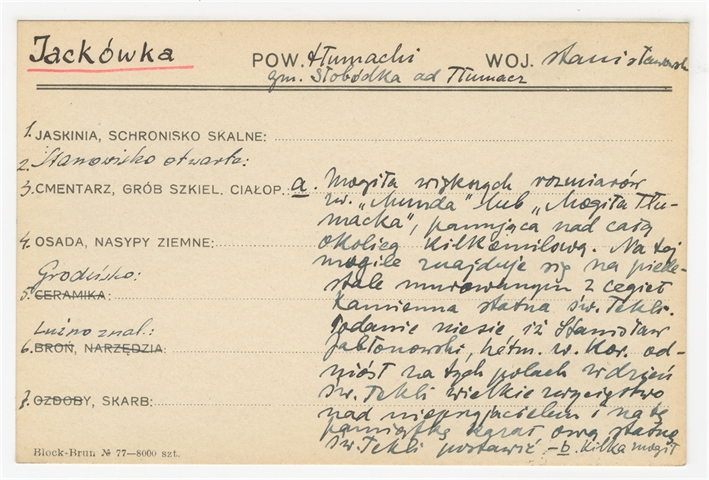 Jackówka POW. tłumacki WOJ. stanisławowski
gm. Słobódka ad Tłumacz
1. JASKINIA, SCHRONISKO SKALNE:
2. Stanowisko otwarte:
3. CMENTARZ, GRÓB SZKIEL. CIAŁOP.: a. Mogiła większych rozmiarów
zw. „Munda" lub „Mogiła Tłu-
macka", panująca nad całą
4. OSADA, NASYPY ZIEMNE: okolicą kilkomilową. Na tej
mogile znajduje się na piede-
Grodzisko:
stale murowanym z cegieł
5. CERAMIKA: kamienna statua św. Tekli.
Luźno znal.: Podanie niesie iż Stanisław
6. BROŃ, NARZĘDZIA: Jabłonowski, hetm. w. kor. od-
niósł na tych polach w dzień
św. Tekli wielkie zwycięstwo
7. OZDOBY, SKARB: nad nieprzyjacielem i na tę
pamiątkę kazał ową statuę
św. Tekli postawić. – b. Kilka mogił
Block-Brun № 77—8000 szt.